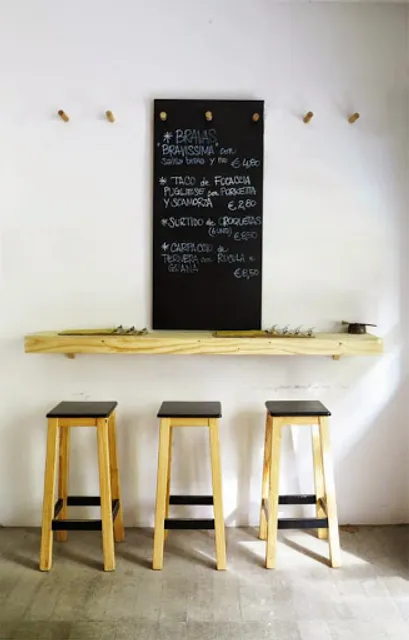 * BRAVAS
"BRAVISSIMA" con
salsa brava y €4,80
* TACO de FOCACCIA
PUGLIESE con PORKETTA
Y SCAMORZA €2,80
* SURTIDO de CROQUETAS
(6 UND) €8,50
* CARPACCIO de
TERNERA con RUCULA e
GRANA €8,50